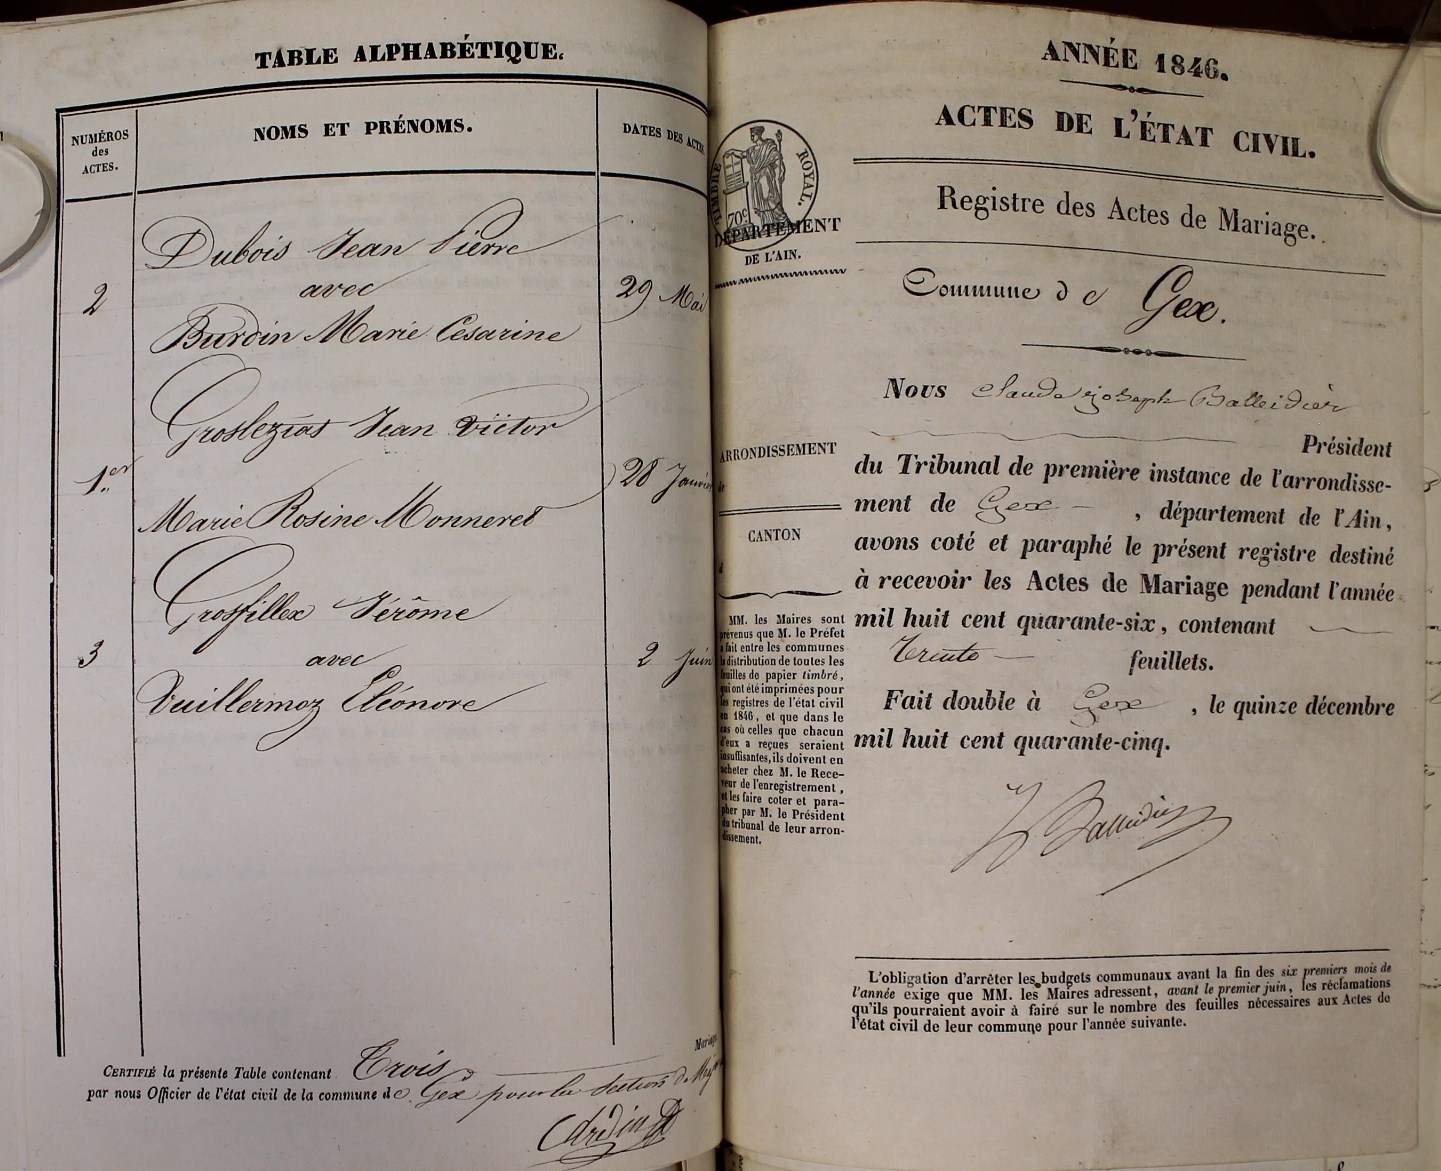 TABLE ALPHABÉTIQUE.
NUMÉROS
des
ACTES.
NOMS ET PRÉNOMS.
DATES DES ACTES
Dubois Jean Pierre
avec
2
29 Mai
Burdin Marie Césarine
Groslezias Jean Victor
1er
28 Janvier
Marie Rosine Monneret
Grosfillex Jérôme
3
avec
2 Juin
Vuillermoz Éléonore
Mariages
CERTIFIÉ la présente Table contenant Trois
par nous Officier de l'état civil de la commune de Gex pour la section de
ANNÉE 1846.
ACTES DE L'ÉTAT CIVIL.
TIMBRE ROYAL.
70c
DÉPARTEMENT
DE L'AIN.
Registre des Actes de Mariage.
Commune de Gex.
Nous Claude joseph Balleidier
Président
ARRONDISSEMENT
de
CANTON
d
du Tribunal de première instance de l'arrondisse-
ment de Gex, département de l'Ain,
avons coté et paraphé le présent registre destiné
à recevoir les Actes de Mariage pendant l'année
mil huit cent quarante-six, contenant
trente feuillets.
Fait double à Gex, le quinze décembre
mil huit cent quarante-cinq.
Balleidier
MM. les Maires sont
prévenus que M. le Préfet
a fait entre les communes
la distribution de toutes les
feuilles de papier timbré,
qui ont été imprimées pour
les registres de l'état civil
en 1846, et que dans le
cas où celles que chacun
d'eux a reçues seraient
insuffisantes, ils doivent en
acheter chez M. le Rece-
veur de l'enregistrement,
et les faire coter et para-
pher par M. le Président
du tribunal de leur arron-
dissement.
L'obligation d'arrêter les budgets communaux avant la fin des six premiers mois de
l'année exige que MM. les Maires adressent, avant le premier juin, les réclamations
qu'ils pourraient avoir à faire sur le nombre des feuilles nécessaires aux Actes de
l'état civil de leur commune pour l'année suivante.